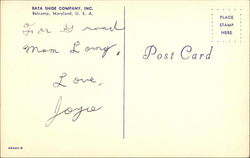 BATA SHOE COMPANY, INC.
Belcamp, Maryland, U. S. A.
PLACE
STAMP
HERE
For Grand
Mom Long,
Post Card
Love,
Joyce